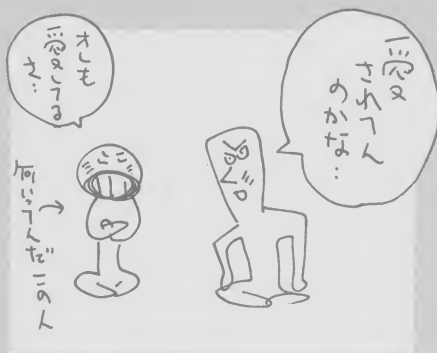 愛
されてん
のかな…
オレも
愛してる
さ…
何いってんだこの人